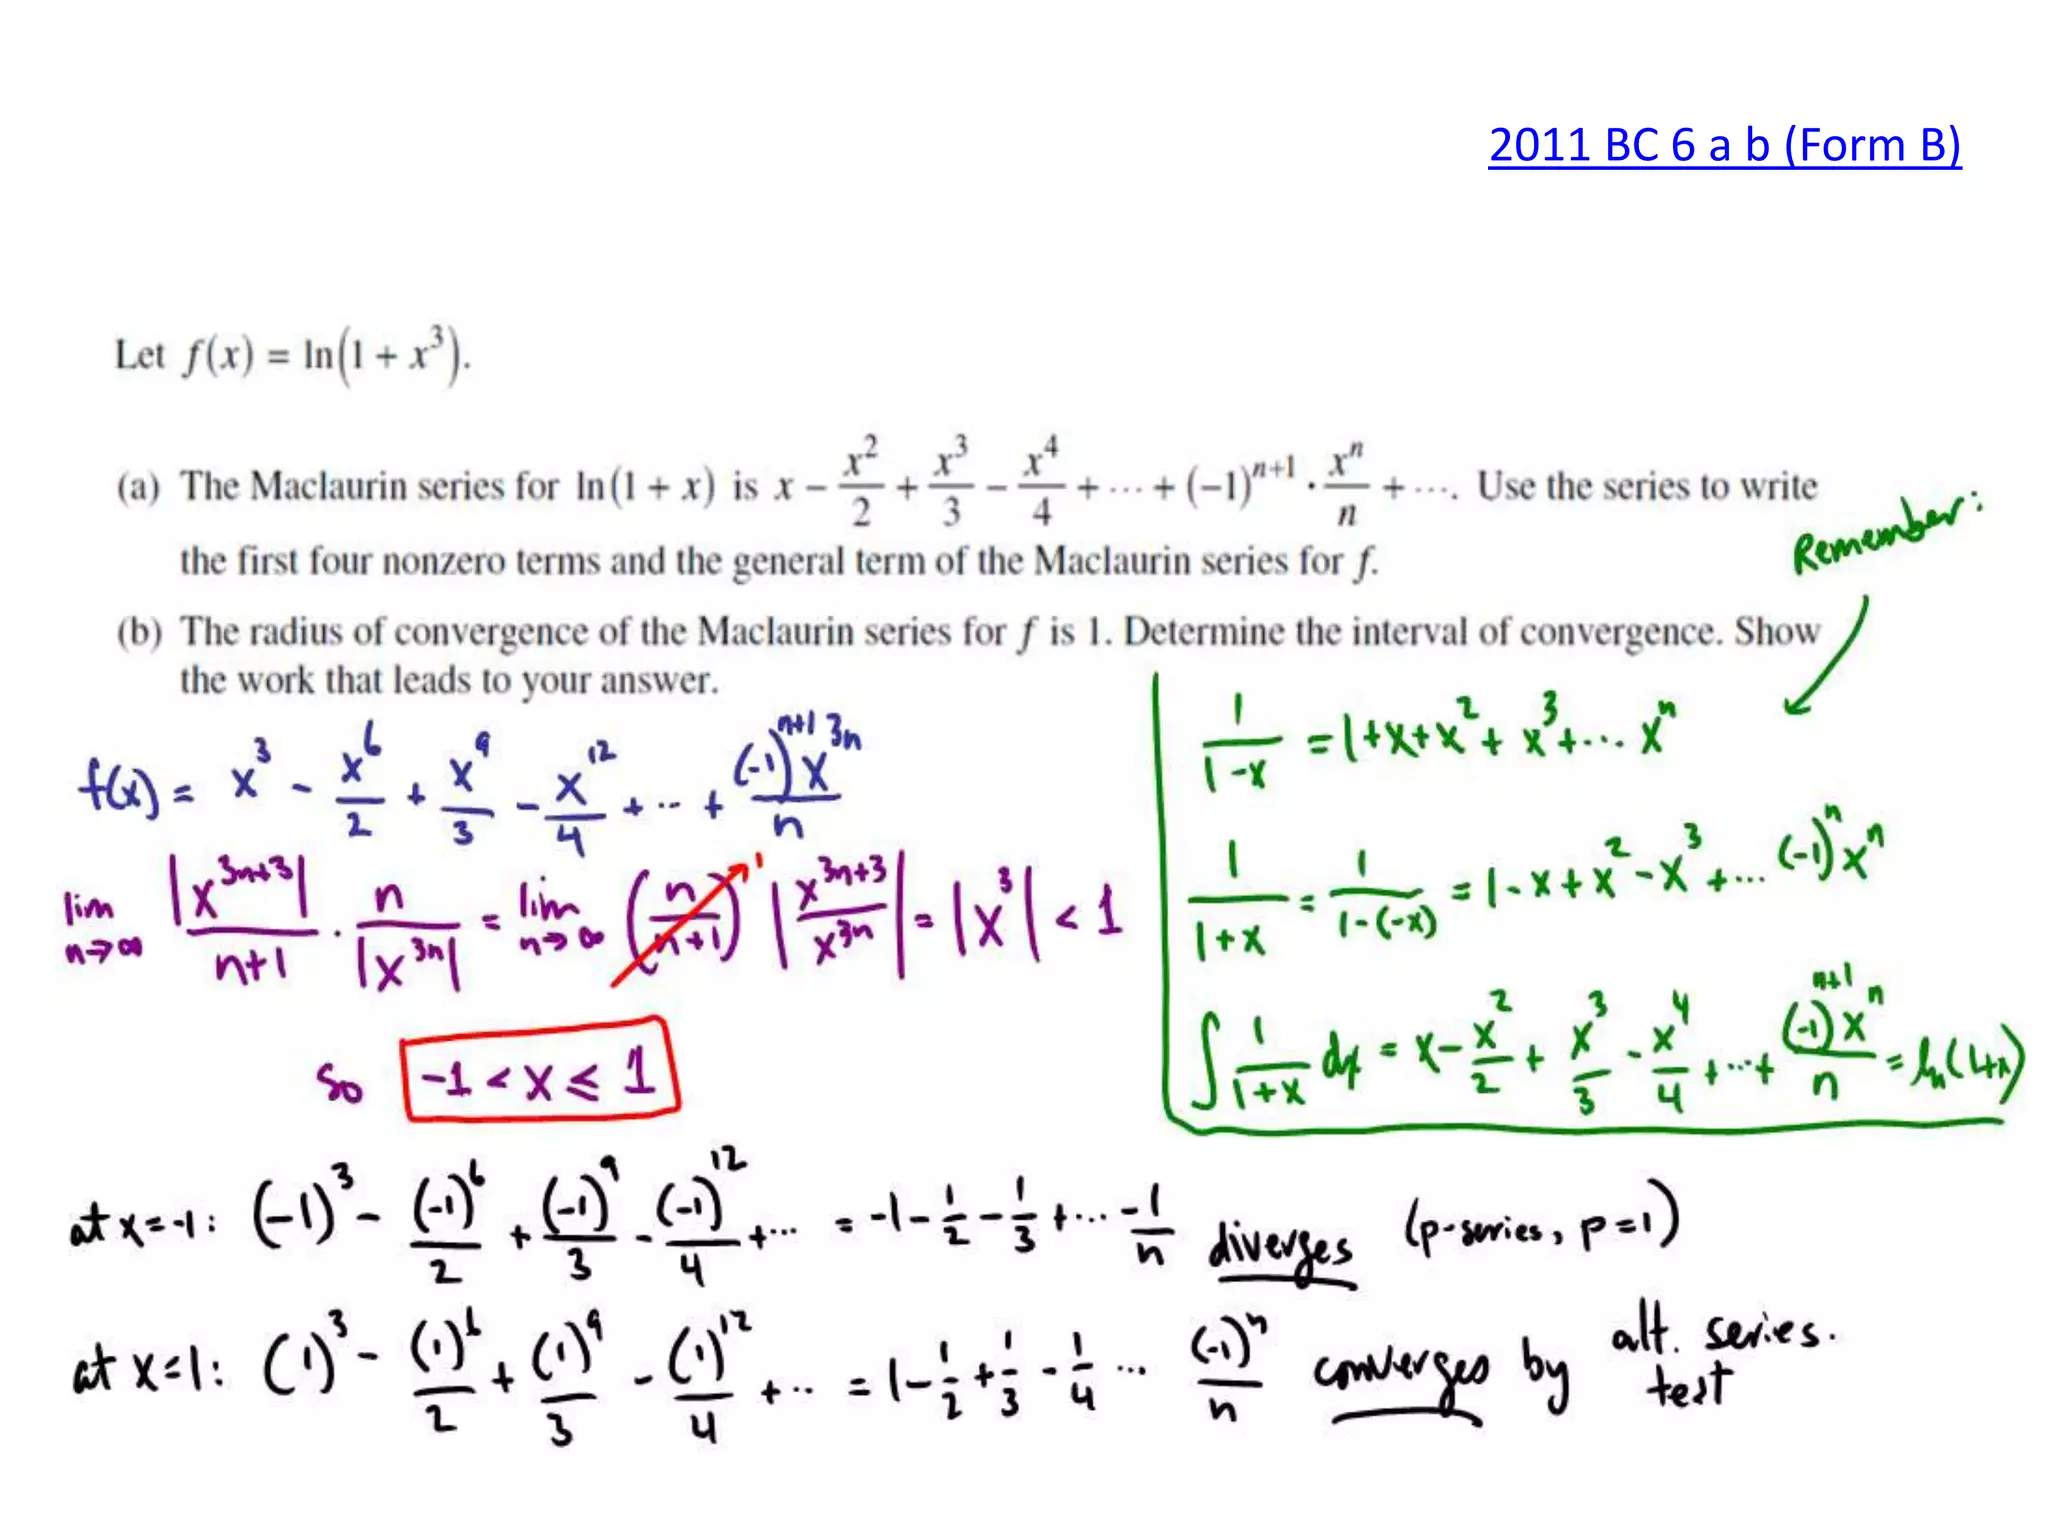 2011 BC 6 a b (Form B)
Let f(x) = ln(1 + x³).
(a) The Maclaurin series for ln(1 + x) is x − x²/2 + x³/3 − x⁴/4 + ⋯ + (−1)ⁿ⁺¹ · xⁿ/n + ⋯. Use the series to write
the first four nonzero terms and the general term of the Maclaurin series for f.
Remember:
(b) The radius of convergence of the Maclaurin series for f is 1. Determine the interval of convergence. Show
the work that leads to your answer.
f(x) = x³ − x⁶/2 + x⁹/3 − x¹²/4 + ⋯ + (−1)ⁿ⁺¹x³ⁿ/n
lim n→∞ |x³ⁿ⁺³|/(n+1) · n/|x³ⁿ| = lim n→∞ (n/(n+1)) 1 |x³ⁿ⁺³/x³ⁿ| = |x³| < 1
so −1 < x ≤ 1
1/(1−x) = 1+x+x²+x³+⋯ xⁿ
1/(1+x) = 1/(1−(−x)) = 1−x+x²−x³+⋯ (−1)ⁿxⁿ
∫ 1/(1+x) dx = x − x²/2 + x³/3 − x⁴/4 + ⋯ + (−1)ⁿ⁺¹xⁿ/n = ln(1+x)
at x=-1: (−1)³ − (−1)⁶/2 + (−1)⁹/3 − (−1)¹²/4 + ⋯ = −1 − 1/2 − 1/3 + ⋯ −1/n diverges (p-series, p=1)
at x=1: (1)³ − (1)⁶/2 + (1)⁹/3 − (1)¹²/4 + ⋯ = 1 − 1/2 + 1/3 − 1/4 ⋯ (−1)ⁿ/n converges by alt. series.
test